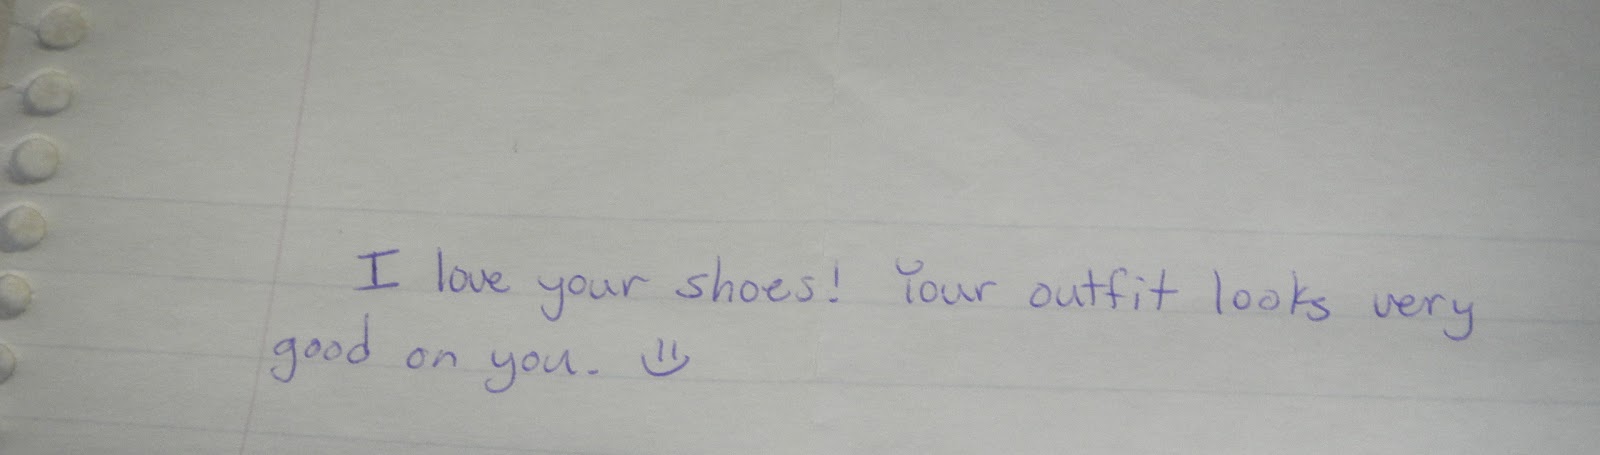 I love your shoes! Your outfit looks very
good on you.